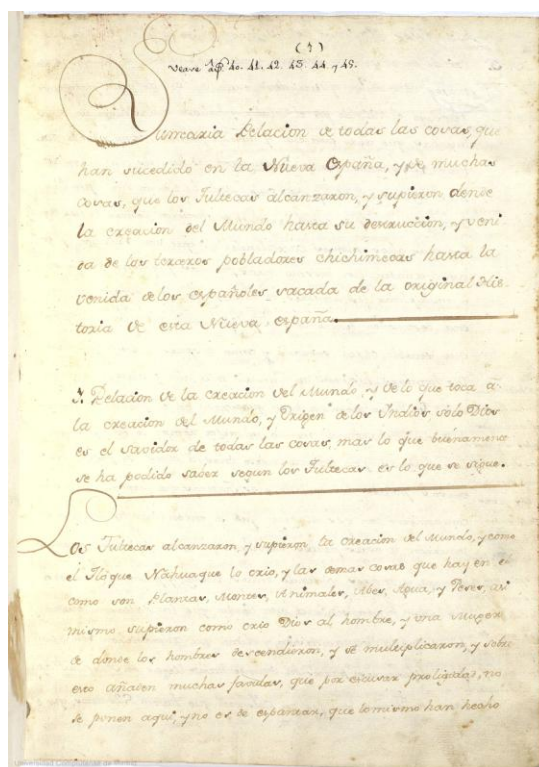 (1)
Vease fs. 40. 41. 42. 43. 44. y 45.
Sumaria Relacion de todas las cosas, que
han sucedido en la Nueva España, y de muchas
cosas, que los Tultecas alcanzaron, y supieron desde
la creacion del Mundo hasta su destruccion, y veni
da de los terceros pobladores chichimecas hasta la
venida de los españoles sacada de la original His-
toria de esta Nueva españa.
1. Relacion de la creacion del Mundo, y de lo que toca â
la creacion del Mundo, y Origen de los Indios solo Dios
es el savidor de todas las cosas, mas lo que buenamente
se ha podido saber segun los Tultecas es lo que se sigue.
Los Tultecas alcanzaron, y supieron, la creacion del Mundo, y como
el Tloque Nahuaque lo crio, y las demas cosas que hay en el
como son Plantas, Montes, Animales, Abes, Agua, y Peses, asi
mismo supieron como crio Dios al hombre, y una Muger
de donde los hombres descendieron, y se multiplicaron, y sobre
esto añaden muchas fabulas, que por escusar proligidad, no
se ponen aqui, y no es de espantar, que lo mismo han hecho
Universidad Complutense de Madrid